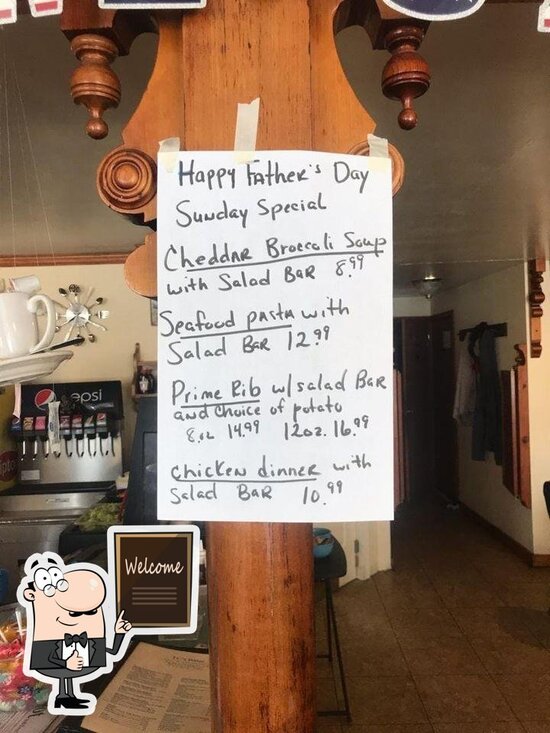 Happy Father's Day
Sunday Special
Cheddar Broccoli Soup
with Salad Bar 8.99
Seafood pasta with
Salad Bar 12.99
Prime Rib w/salad Bar
and choice of potato
8.oz 14.99 12oz. 16.99
chicken dinner with
Salad Bar 10.99
pepsi
Welcome